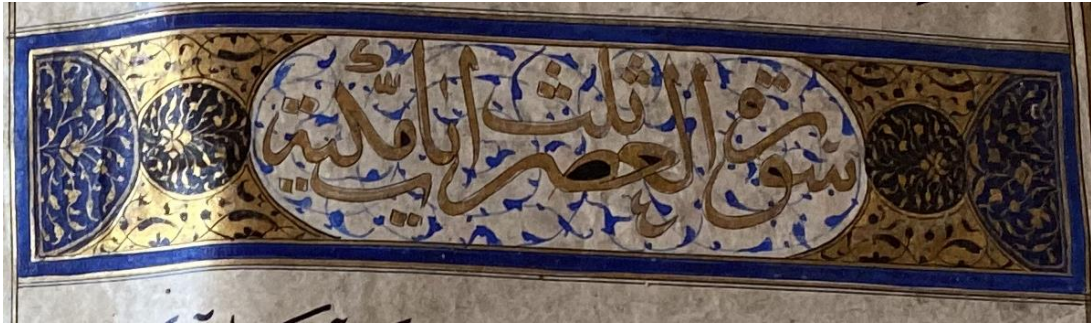 سورة العصر ثلث ایات مكية